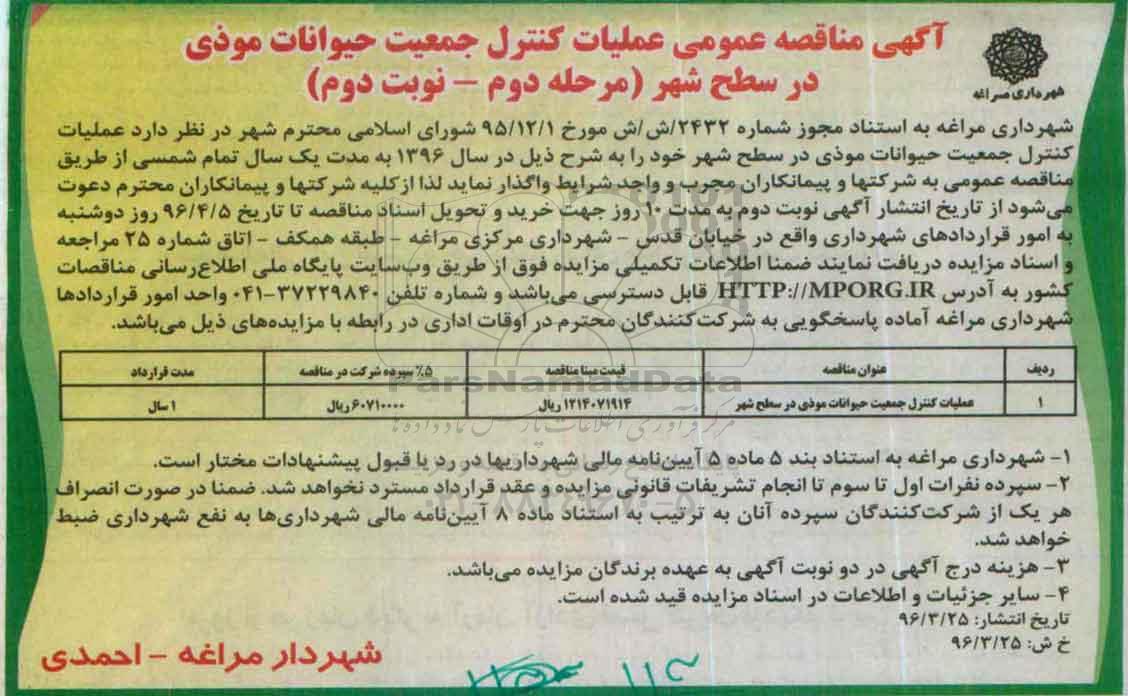 آگهی مناقصه عمومی عملیات کنترل جمعیت حیوانات موذی
در سطح شهر (مرحله دوم – نوبت دوم)
شهرداری مراغه
شهرداری مراغه به استناد مجوز شماره ۲۴۳۲/ش/ش مورخ ۹۵/۱۲/۱ شورای اسلامی محترم شهر در نظر دارد عملیات
کنترل جمعیت حیوانات موذی در سطح شهر خود را به شرح ذیل در سال ۱۳۹۶ به مدت یک سال تمام شمسی از طریق
مناقصه عمومی به شرکتها و پیمانکاران مجرب و واجد شرایط واگذار نماید لذا ازکلیه شرکتها و پیمانکاران محترم دعوت
می‌شود از تاریخ انتشار آگهی نوبت دوم به مدت ۱۰ روز جهت خرید و تحویل اسناد مناقصه تا تاریخ ۹۶/۴/۵ روز دوشنبه
به امور قراردادهای شهرداری واقع در خیابان قدس – شهرداری مرکزی مراغه – طبقه همکف – اتاق شماره ۲۵ مراجعه
و اسناد مزایده دریافت نمایند ضمنا اطلاعات تکمیلی مزایده فوق از طریق وب‌سایت پایگاه ملی اطلاع‌رسانی مناقصات
کشور به آدرس HTTP://MPORG.IR قابل دسترسی می‌باشد و شماره تلفن ۳۷۲۲۹۸۴۰–۰۴۱ واحد امور قراردادها
شهرداری مراغه آماده پاسخگویی به شرکت‌کنندگان محترم در اوقات اداری در رابطه با مزایده‌های ذیل می‌باشد.
ردیف عنوان مناقصه قیمت مبنا مناقصه ۵٪ سپرده شرکت در مناقصه مدت قرارداد
۱ عملیات کنترل جمعیت حیوانات موذی در سطح شهر ۱۲۱۴۰۷۱۹۱۴ ریال ۶۰۷۱۰۰۰۰ ریال ۱ سال
ParsNamadData
مرکز فرآوری اطلاعات پارس نماد داده ها
۱– شهرداری مراغه به استناد بند ۵ ماده ۵ آیین‌نامه مالی شهرداریها در رد یا قبول پیشنهادات مختار است.
۲– سپرده نفرات اول تا سوم تا انجام تشریفات قانونی مزایده و عقد قرارداد مسترد نخواهد شد. ضمنا در صورت انصراف
هر یک از شرکت‌کنندگان سپرده آنان به ترتیب به استناد ماده ۸ آیین‌نامه مالی شهرداری‌ها به نفع شهرداری ضبط
خواهد شد.
۳– هزینه درج آگهی در دو نوبت آگهی به عهده برندگان مزایده می‌باشد.
۴– سایر جزئیات و اطلاعات در اسناد مزایده قید شده است.
تاریخ انتشار: ۹۶/۳/۲۵
خ ش: ۹۶/۳/۲۵
شهردار مراغه – احمدی